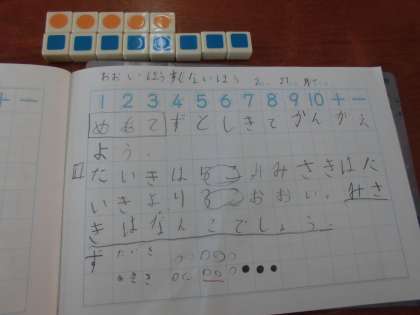 おおいほうすくないほう
1 2 3 4 5 6 7 8 9 10 + −
+ −
めあて ずとしきでかんがえ
よう。
たいきは5こ みさきはた
いきより おおい。みさ
きはなんこでしょう。
ず たいき
みさき